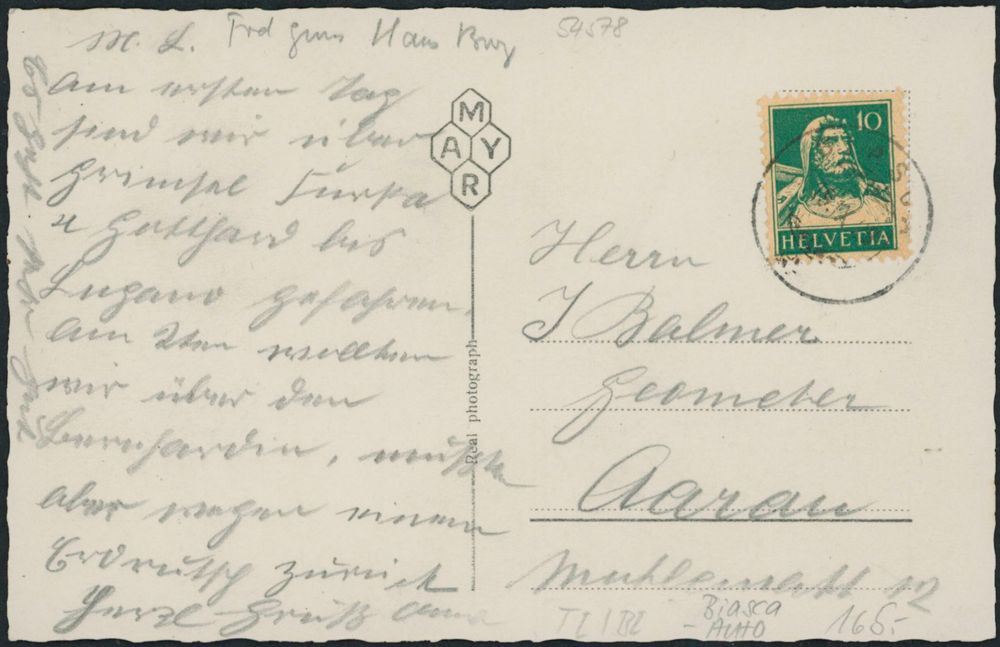 M. L.
Frd gruss Hans Burg
54578
Am ersten Tag
sind wir über
Grimsel Furka
u Gotthard bis
Lugano gefahren,
am 2ten wollten
wir über den
Bernhardin, mussten
aber wegen einem
Erdrutsch zurück
Herzl Grüße
MAYR
Real photograph
10
HELVETIA
Herrn
J Balmer
Geometer
Aarau
Muhlematt 12
TI / BL
Biasca
- AUTO
165.-